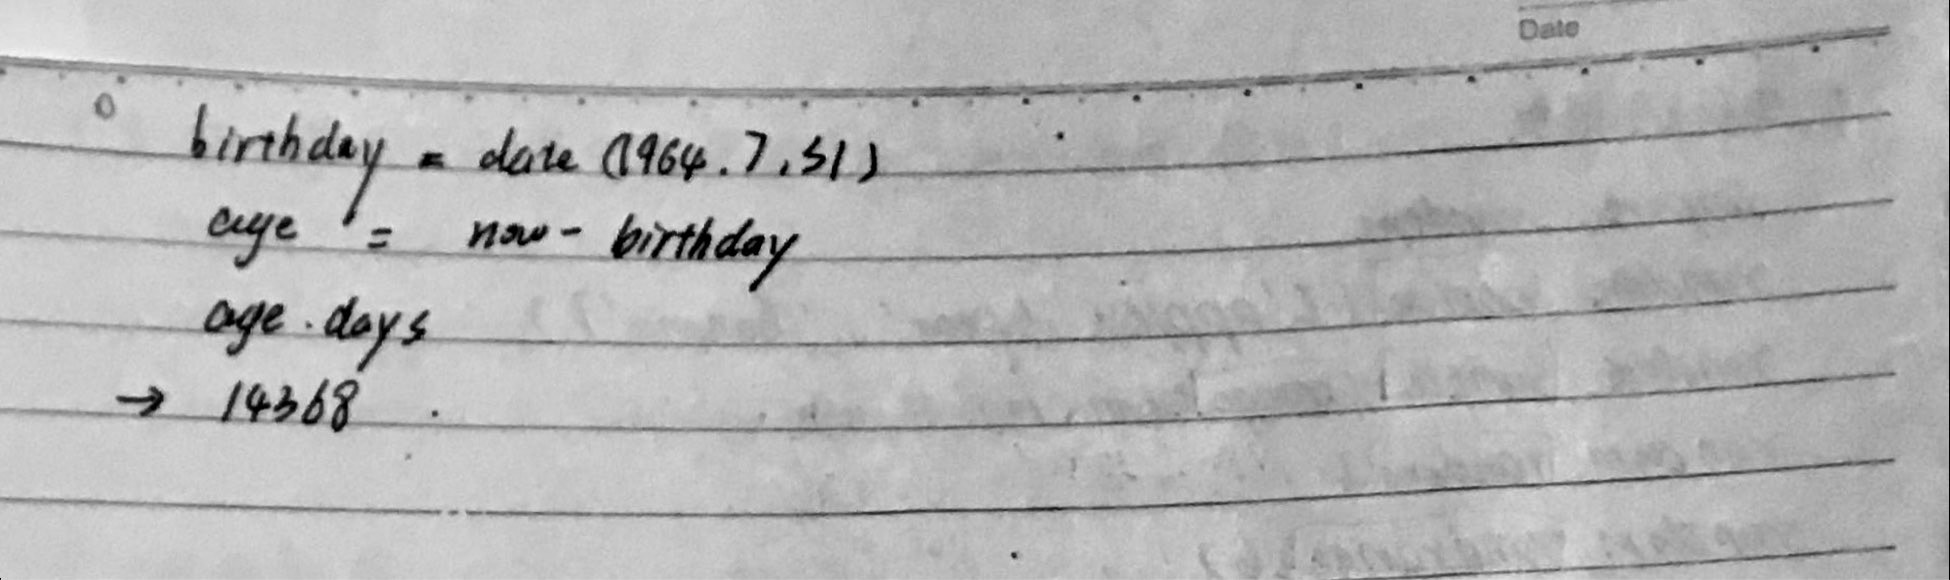 Date
birthday = date (1964.7.31)
age = now - birthday
age.days
→ 14368